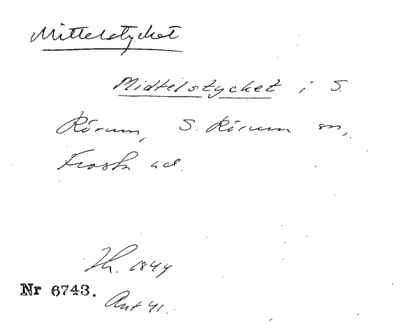 Mittelstycket
Midtelstycket i S.
Rörum, S. Rörum sn,
Frosta hd.
Th. 1844
Nr 6743.
Ant 41.